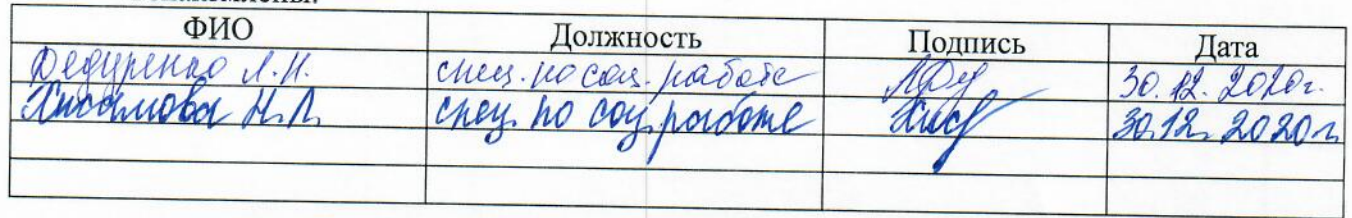 ФИО Должность Подпись Дата
Федуренко Л.Н. спец. по соц. работе 30.12.2020г.
Хисамова Н.Л. спец. по соц. работе Хис 30.12.2020г.